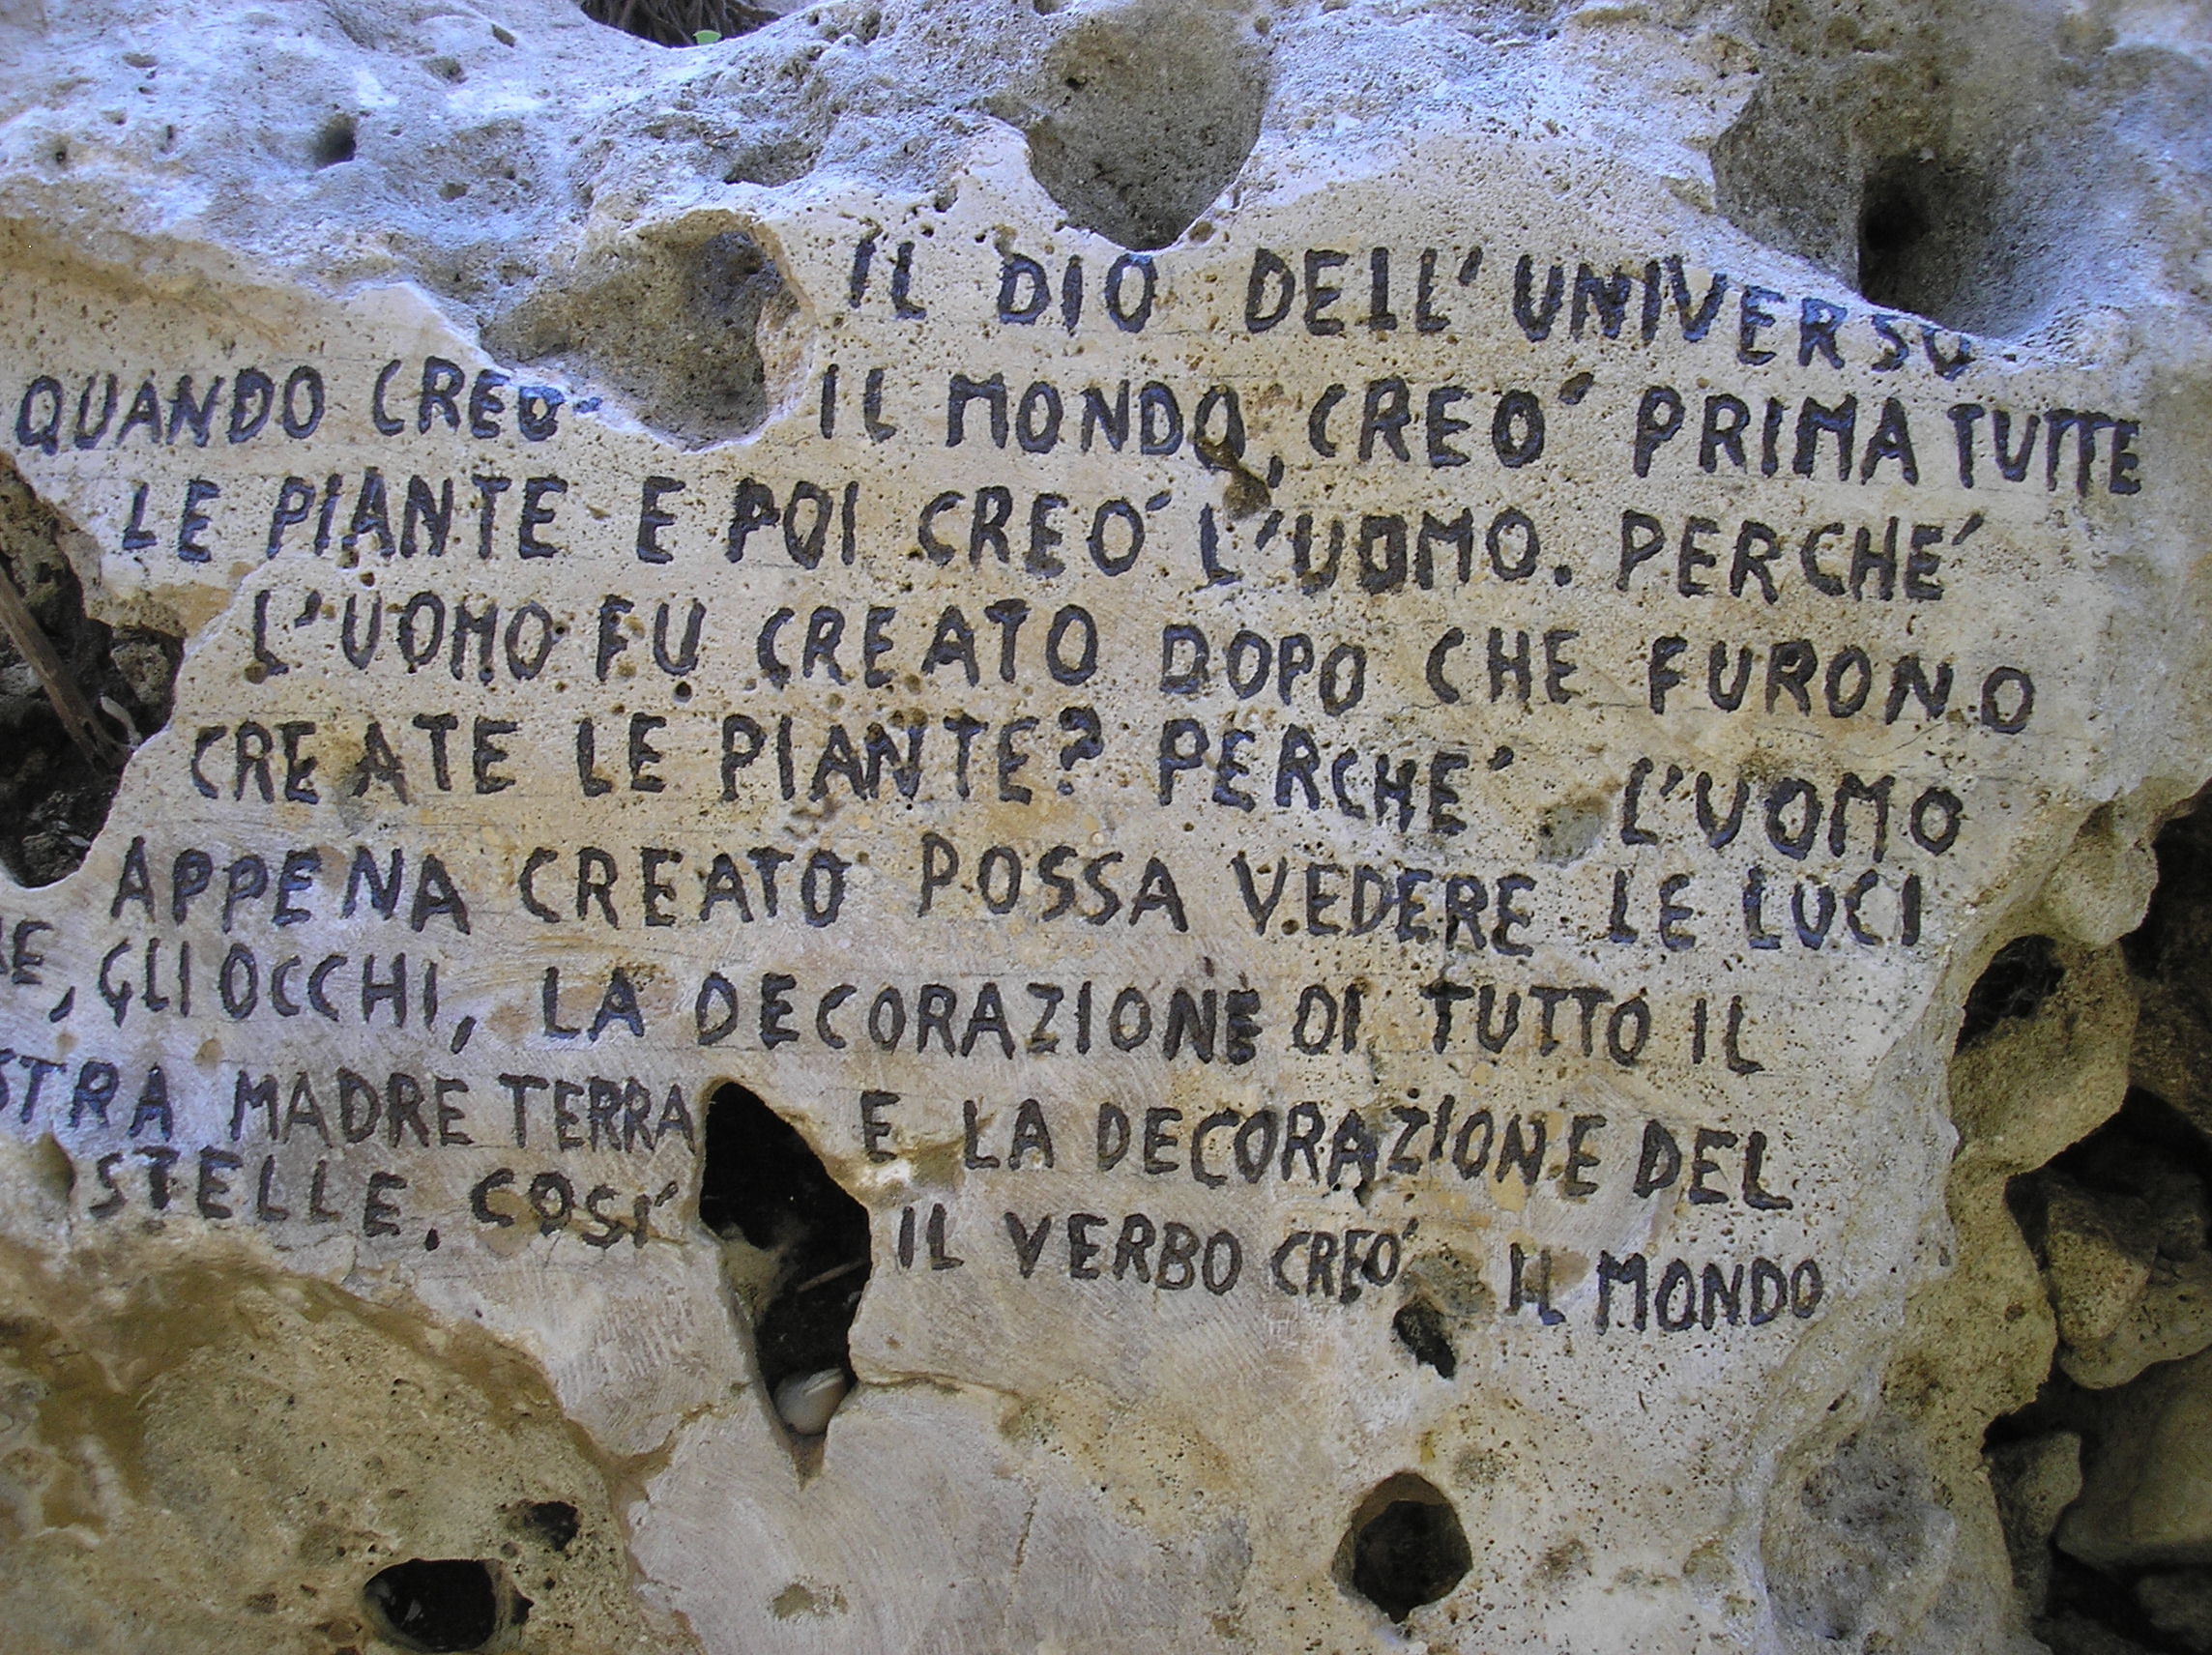 IL DIO DELL'UNIVERSO
QUANDO CREO' IL MONDO, CREO' PRIMA TUTTE
LE PIANTE E POI CREO' L'UOMO. PERCHE'
L'UOMO FU CREATO DOPO CHE FURONO
CREATE LE PIANTE? PERCHE' L'UOMO
APPENA CREATO POSSA VEDERE LE LUCI
, GLI OCCHI, LA DECORAZIONE DI TUTTO IL
STRA MADRE TERRA E LA DECORAZIONE DEL
STELLE. COSI' IL VERBO CREO' IL MONDO